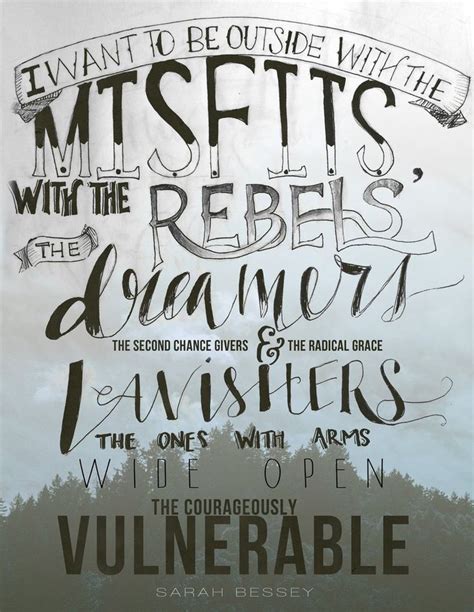 I WANT TO BE OUTSIDE WITH THE
MISFITS,
WITH THE REBELS,
THE
dreamers
THE SECOND CHANCE GIVERS & THE RADICAL GRACE
LAVISHERS
THE ONES WITH ARMS
WIDE OPEN
THE COURAGEOUSLY
VULNERABLE
SARAH BESSEY